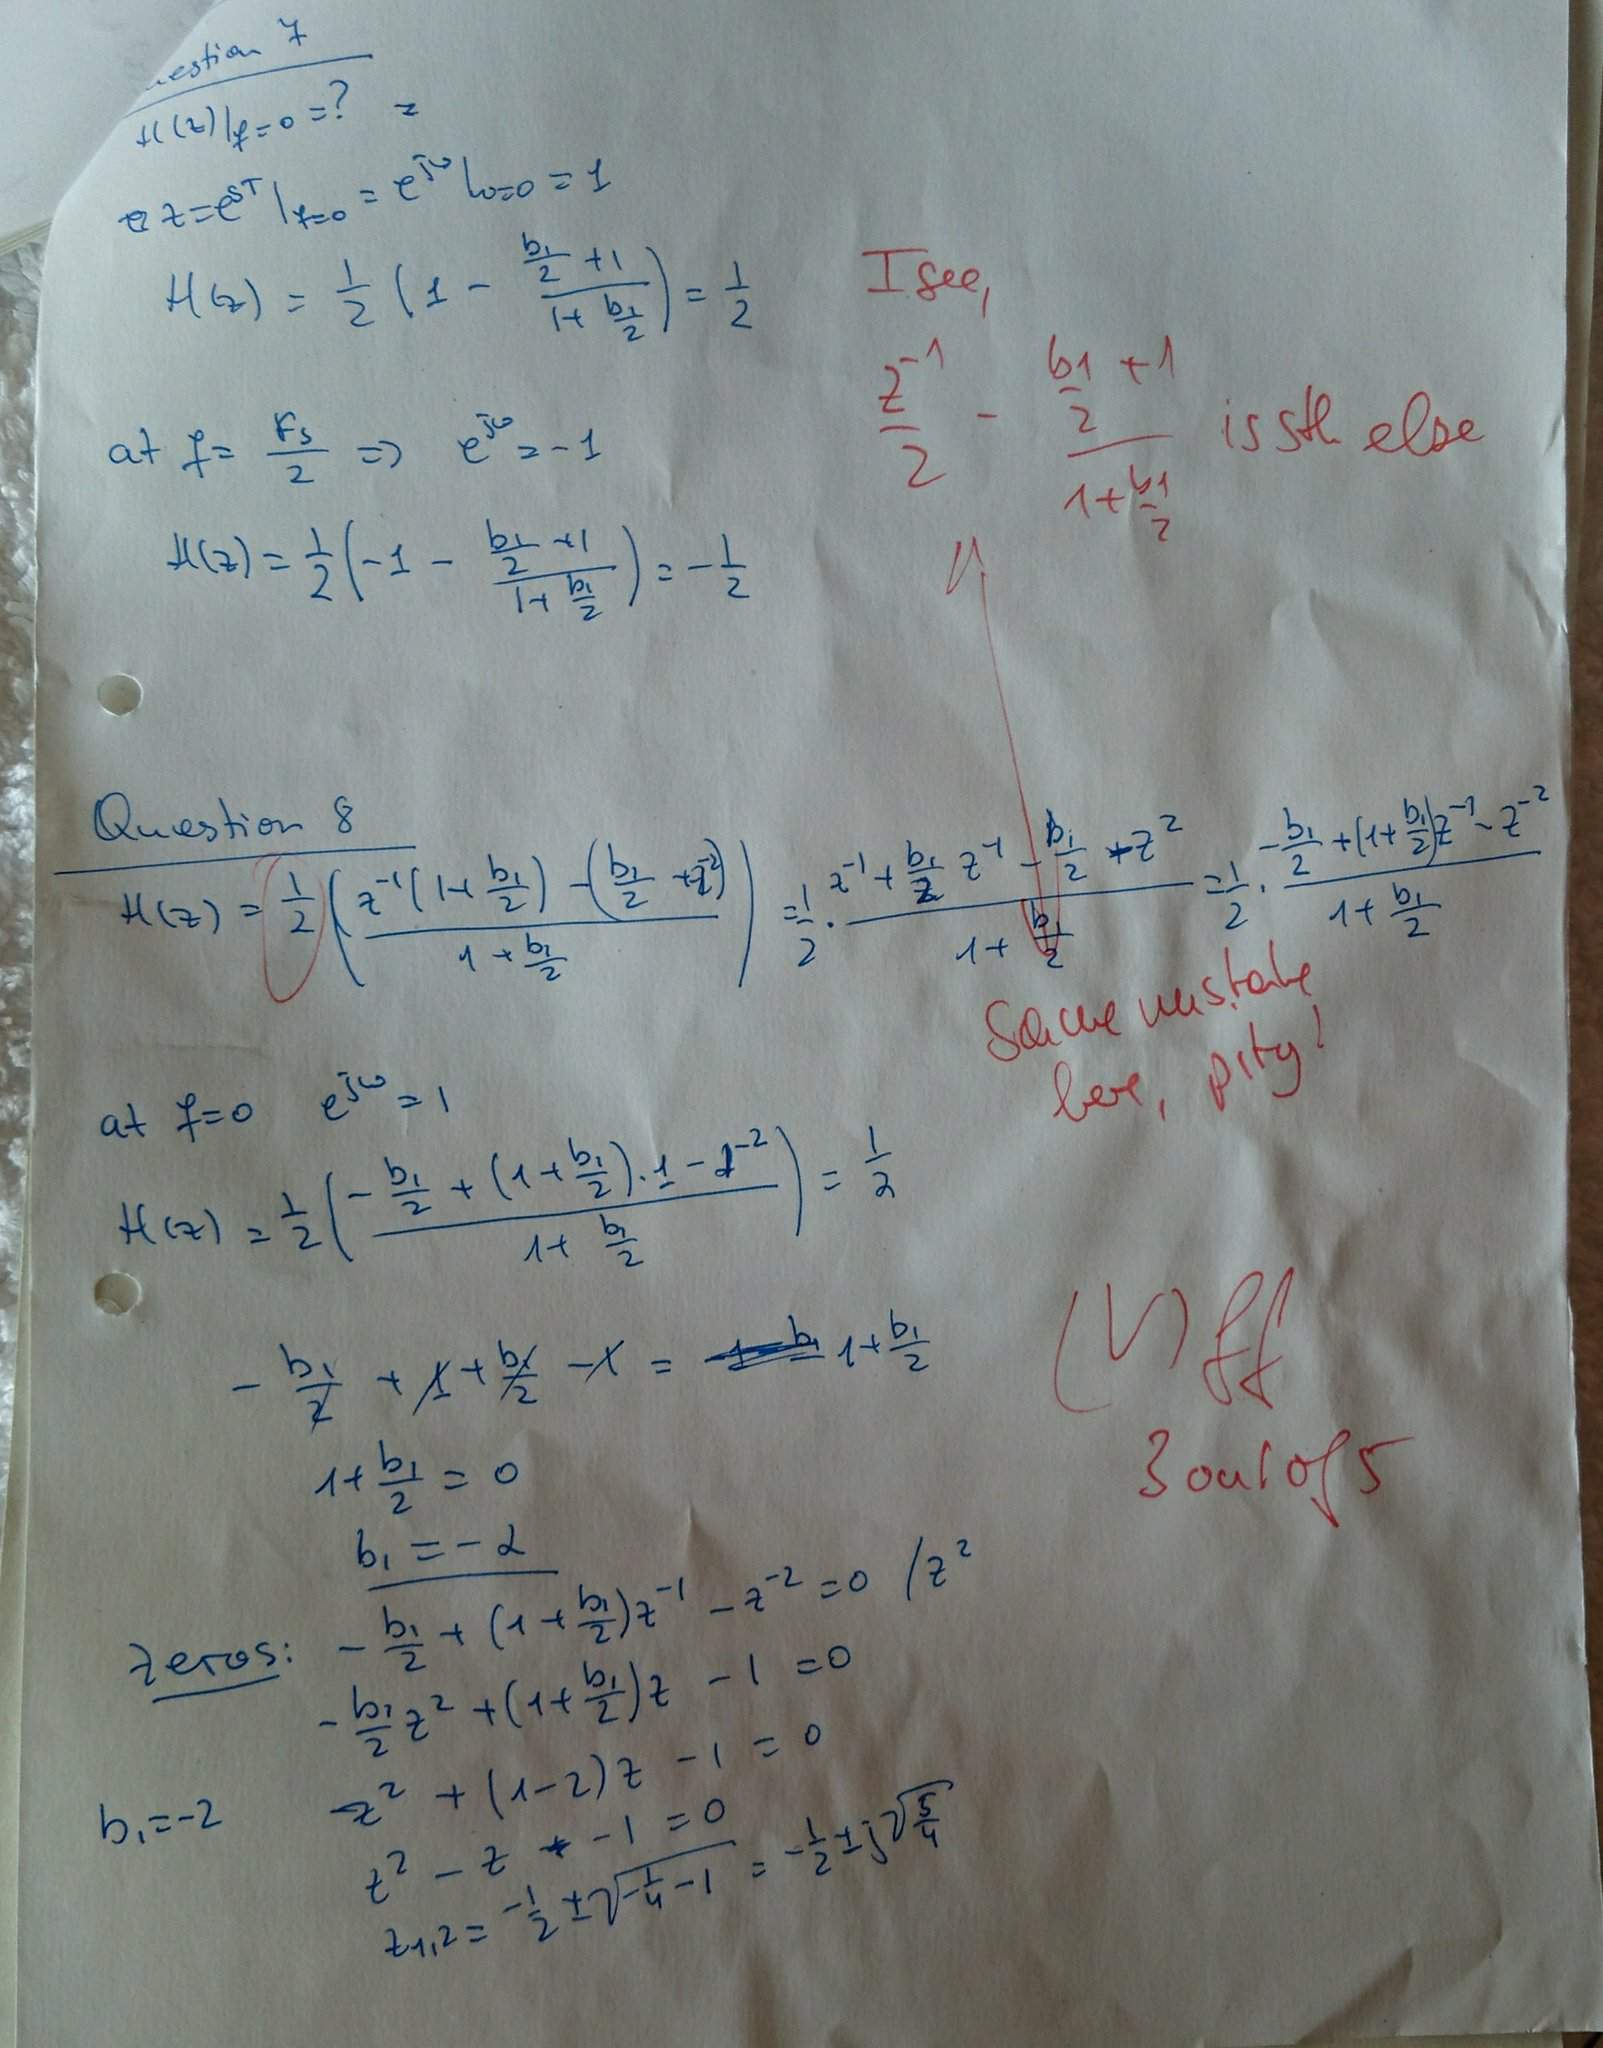 uestion 7
H(z)|f=0 = ? =
z = e^sT |f=0 = e^jω |ω=0 = 1
H(z) = 1/2 (1 - (b1/2 + 1)/(1 + b1/2)) = 1/2
I see,
z^-1/2 - (b1/2 + 1)/(1 + b1/2) is sth else
at f = Fs/2 => e^jω = -1
H(z) = 1/2 (-1 - (b1/2 + 1)/(1 + b1/2)) = -1/2
Question 8
H(z) = 1/2 ((z^-1 (1 + b1/2) - (b1/2 + z^-2))/(1 + b1/2)) = 1/2 · (z^-1 + b1/2 z^-1 - b1/2 + z^2)/(1 + b1/2) = 1/2 · (-b1/2 + (1 + b1/2)z^-1 - z^-2)/(1 + b1/2)
Same mistake
here, pity!
at f=0 e^jω = 1
H(z) = 1/2 ((-b1/2 + (1 + b1/2)·1 - 1^-2)/(1 + b1/2)) = 1/2
-b1/2 + 1 + b1/2 - 1 = 1 + b1/2
(V) ff
3 out of 5
1 + b1/2 = 0
b1 = -2
Zeros: -b1/2 + (1 + b1/2)z^-1 - z^-2 = 0 /z^2
-b1/2 z^2 + (1 + b1/2)z - 1 = 0
b1 = -2 z^2 + (1-2)z - 1 = 0
z^2 - z - 1 = 0
z1,2 = -1/2 ± √(-1/4 - 1) = -1/2 ± j√(5/4)